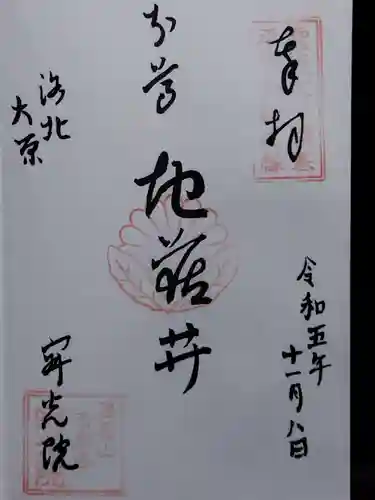 奉拝
令和五年
十一月八日
本尊
地蔵井
洛北
大原
寂光院